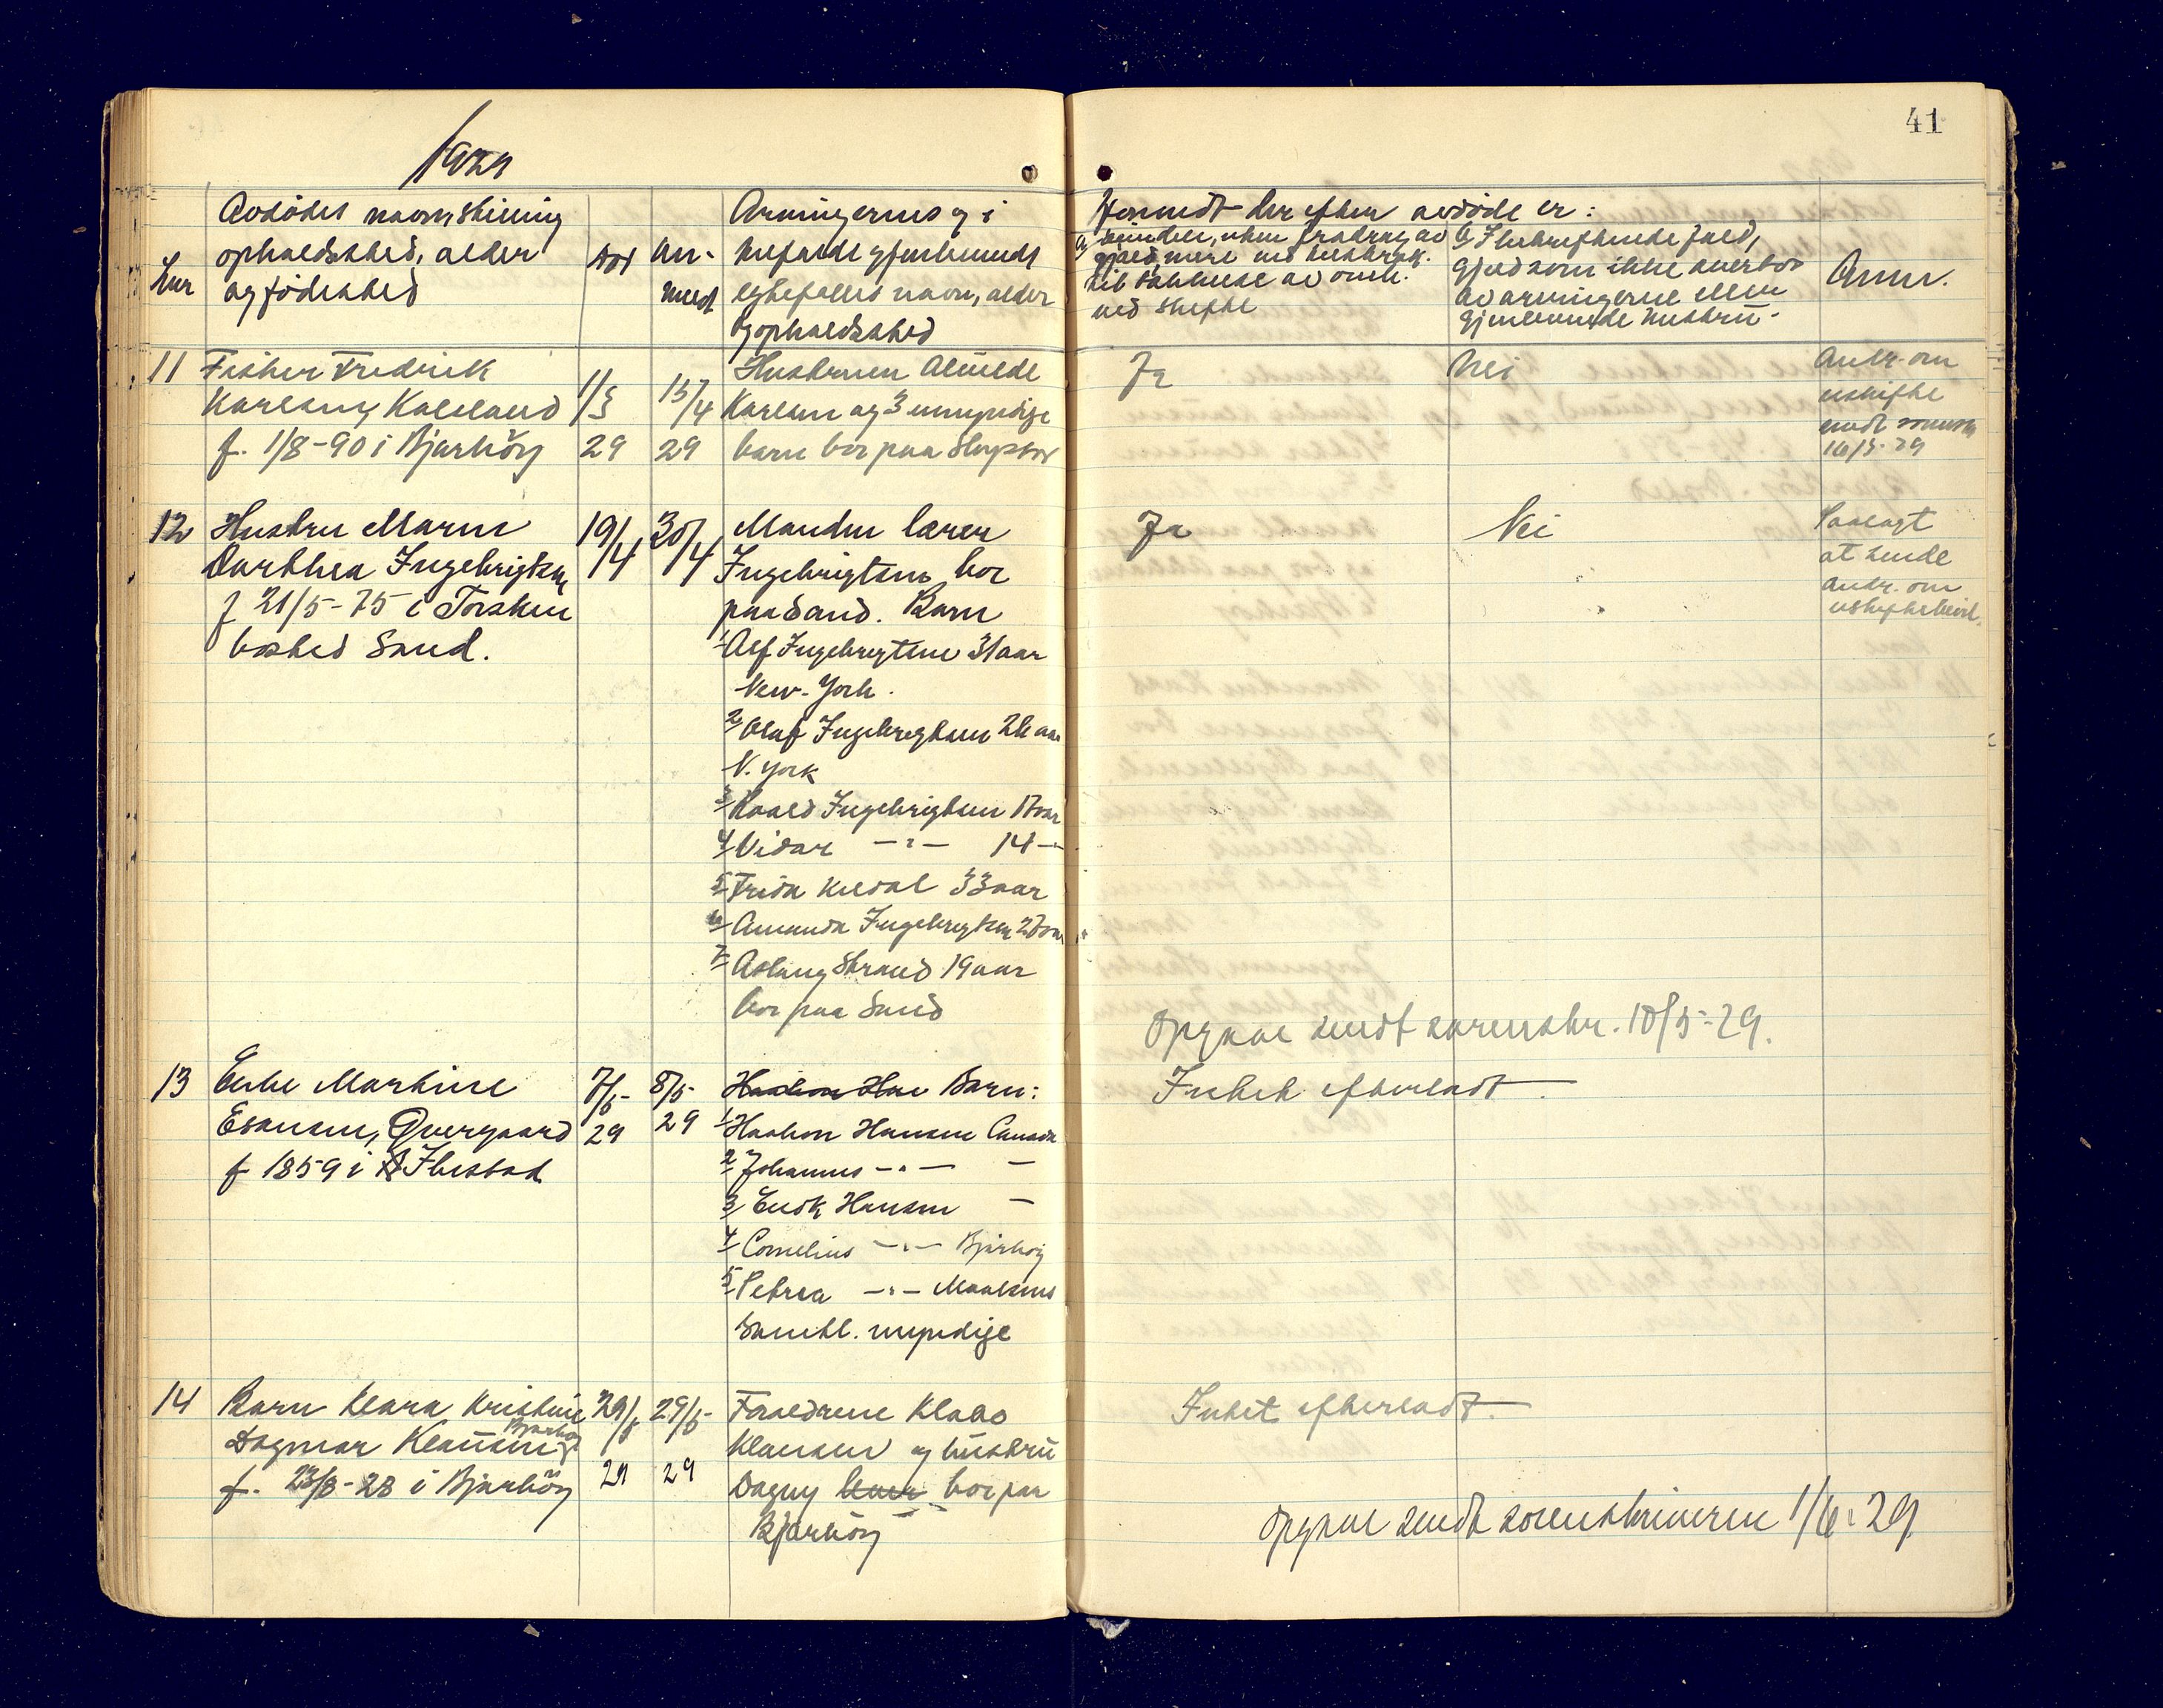 41
1929
Lnr
Avdødes navn, stilling
opholdssted, alder
og fødested
Død
An-
meldt
Arvingernes og i
tilfælde gjenlevende
egtefælles navn, alder
og opholdssted
Hvorvidt der efter avdøde er:
a) midler, uten fradrag av
gjæld, mere end
ved skifte
b) Ihvertfald
gjæld som ikke overtas
av arvingerne eller
gjenlevende hustru.
Anm.
11
Fisker Fredrik
Karlsen, Kaldsland
f. 1/8-90 i Bjarkøy
1/3
29
15/4
29
Hustruen Almilde
Karlsen og 3 umyndige
barn bor paa
Ja
Nei
Andr. om
uskifte
sendt sorensk
16/5-29
12
Hustru Maren
Dorthea Ingebrigtsen,
f 21/5-75 i Torsken
bosted Sand.
19/4
30/4
Manden lærer
Ingebrigtsen bor
paa Sand. Barn
1 Alf Ingebrigtsen 31 aar
New-York.
2 Olaf Ingebrigtsen 26 aar
N. York
3 Roald Ingebrigtsen 17 aar
4 Vidar —"— 14 —"—
5 Frida Kildal 33 aar
6 Amanda Ingebrigtsen 27 aar
7 Aslaug Strand 19 aar
bor paa Sand
Ja
Nei
Paalagt
at sende
andr. om
uskiftebevil.
Opgave sendt sorenskr. 10/5-29.
13
Enke Martine
Esausen, Øvergaard
f 1859 i Ibestad
7/5-
29
8/5-
29
Haakon Han Barn:
1 Haakon Hansen Canada
2 Johannes —"— —
3 Enok Hansen —
4 Cornelius —"— Bjarkøy
5 Petrea —"— Maalsnes
Samtl. myndige
Intet efterladt.
14
Barn Klara Kristine
Dagmar Klausen,
Bjarkøy
f. 23/8-28 i Bjarkøy
29/5
29
29/5-
29
Forældrene Klaas
Klausen og hustru
Dagny bor paa
Bjarkøy
Intet efterladt.
Opgave sendt sorenskriveren 1/6-29